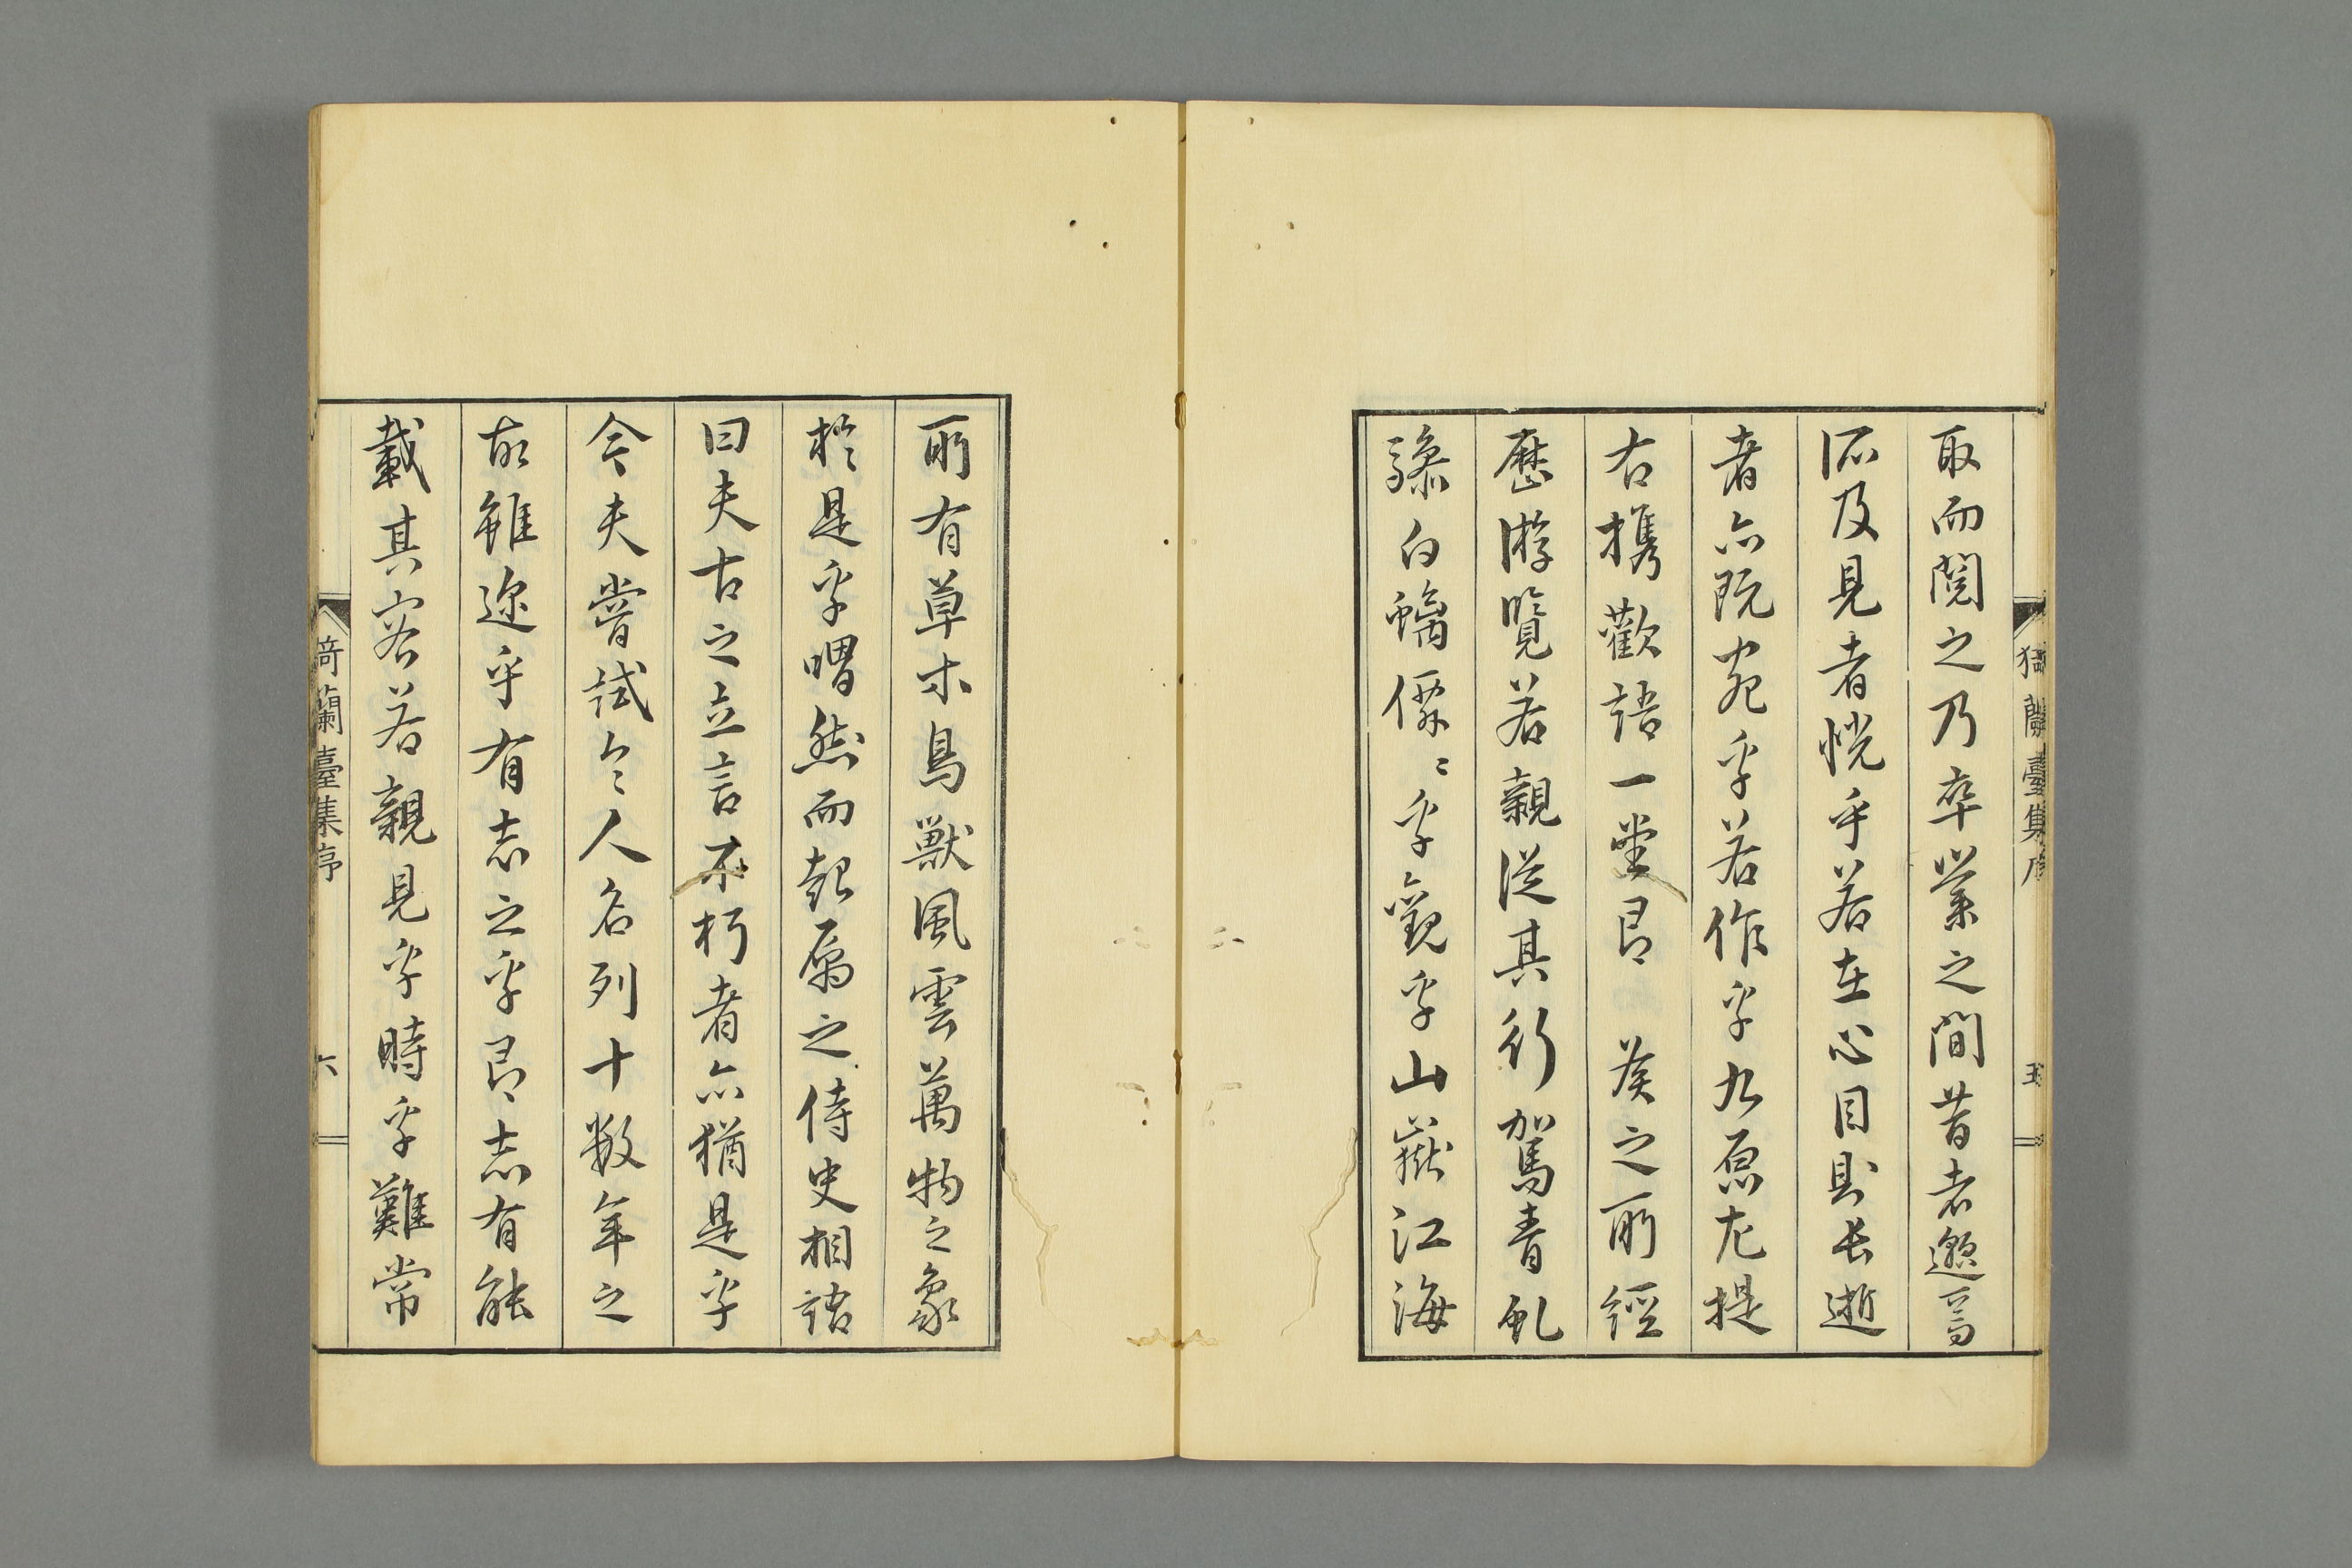 取而閱之乃卒業之間昔者邈焉
不及見者恍乎若在心目則長逝
者亦既宛乎若作乎九原左提
右攜歡語一堂即 葵之所經
歷游覽若親從其行駕青虬
驂白螭僊〻乎觀乎山嶽江海
所有草木鳥獸風雲萬物之象
於是乎喟然而起屬之侍史相語
曰夫古之立言不朽者亦猶是乎
今夫嘗試令人名列十數年之
故雖邇乎有志之乎即志有能
載其容若親見乎時乎難常
猗蘭臺集序
五
猗蘭臺集序
六